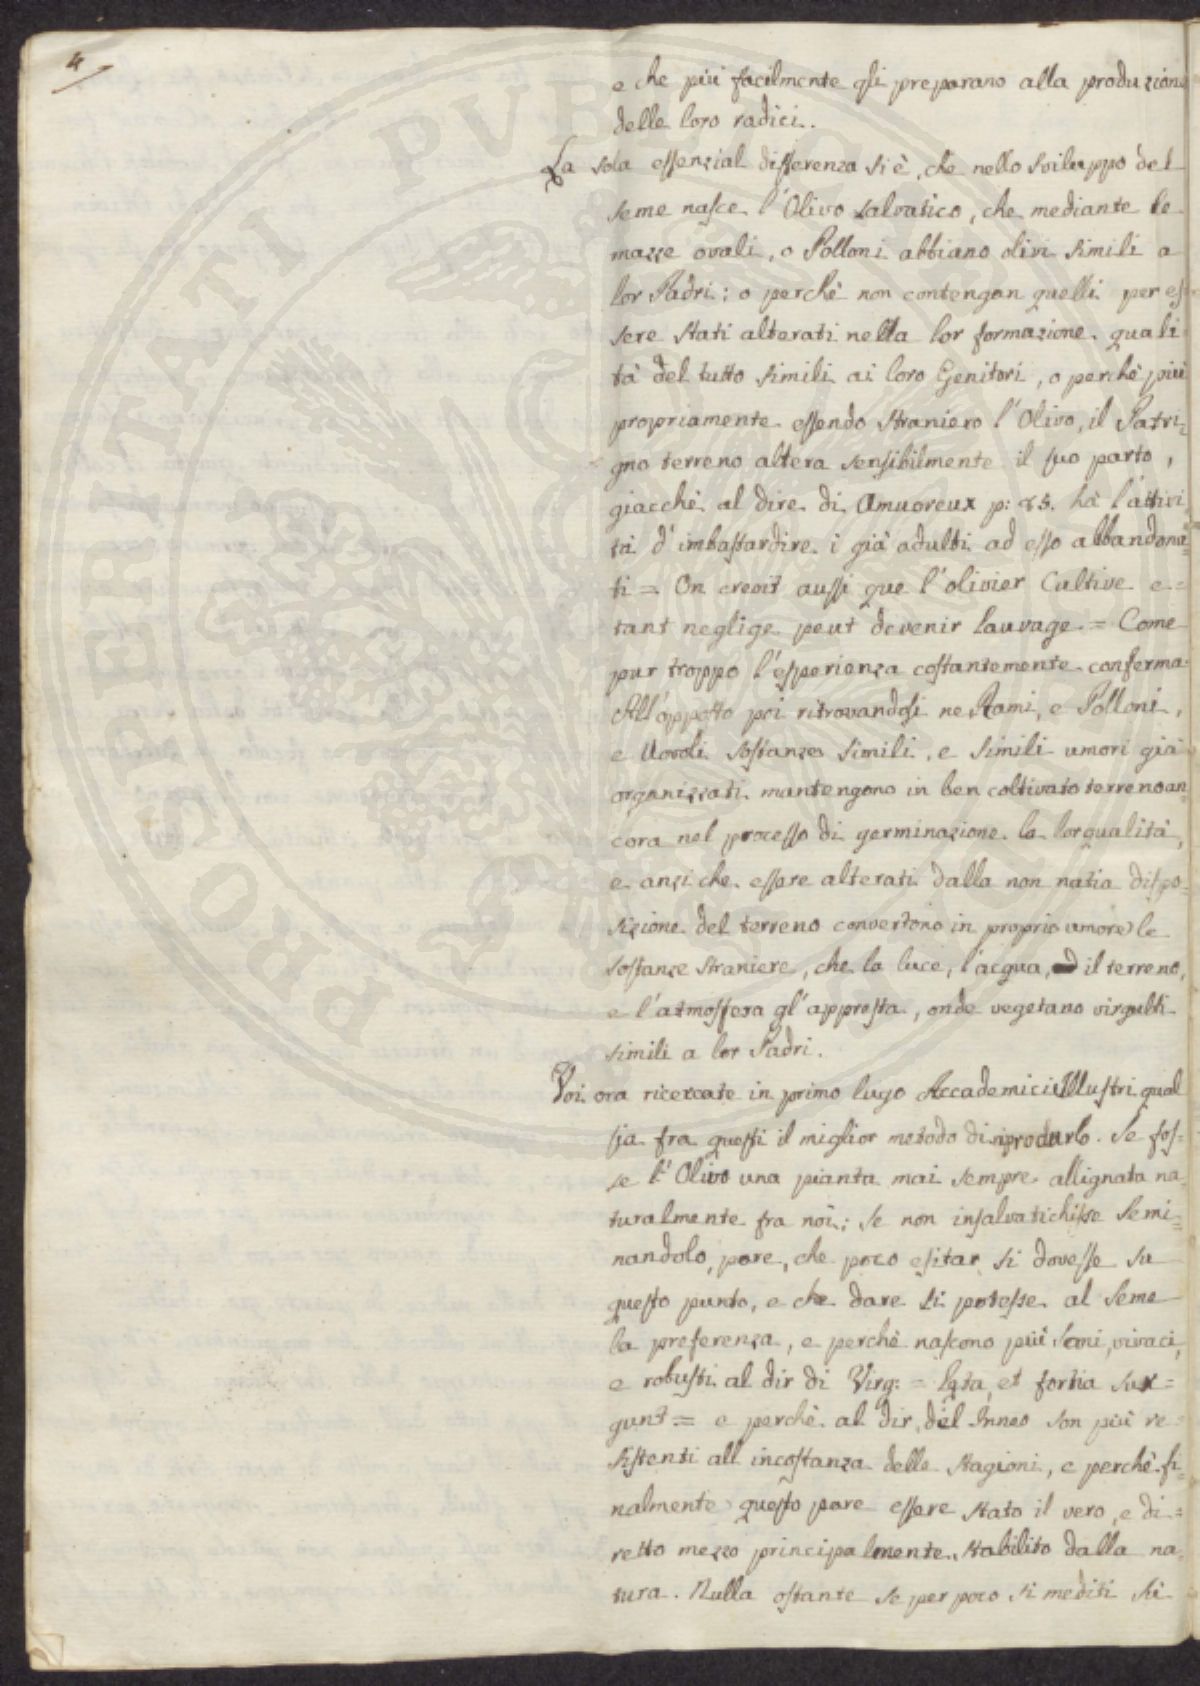 4
PROSPERITATI PUBLICAE
e che più facilmente gli preparano alla produzione
delle loro radici.
La sola essenzial differenza si è, che nello sviluppo del
seme nasce l'Olivo salvatico, che mediante le
mazze ovali, o Polloni abbiano olivi simili a
lor Padri; o perchè non contengan quelli per es
sere stati alterati nella lor formazione quali
tà del tutto simili ai loro Genitori, o perchè più
propriamente essendo straniero l'Olivo, il Patri=
gno terreno altera sensibilmente il suo parto,
giacchè al dire di Amuoreux p: 85. hà l'attivi
tà d'imbastardire i già adulti ad esso abbandona=
ti = On croit aussi que l'olivier Cultive e=
tant neglige peut devenir sauvage = Come
pur troppo l'esperienza costantemente conferma.
All'opposto poi ritrovandosi ne Rami, e Polloni,
e Uovoli sostanze simili, e simili umori già
organizzati mantengono in ben coltivato terreno an=
cora nel processo di germinazione la lor qualità,
e anzi che essere alterati dalla non natia dispo=
sizione del terreno convertono in proprio umore le
sostanze straniere, che la luce, l'acqua, il terreno,
e l'atmosfera gl'appresta, onde vegetano virgulti
simili a lor Padri.
Voi ora ricercate in primo lugo Accademici Illustri qual
sia fra questi il miglior metodo di riprodurlo. Se fos=
se l'Olivo una pianta mai sempre allignata na=
turalmente fra noi; se non insalvatichisse semi=
nandolo, pare, che poco esitar si dovesse su
questo punto, e che dare si potesse al seme
la preferenza, e perchè nascono più sani, vivaci,
e robusti al dir di Virg: = lęta, et fortia sur=
gunt = e perchè al dir, del Inneo son più re=
sistenti all incostanza delle stagioni, e perchè fi=
nalmente questo pare essere stato il vero, e di=
retto mezzo principalmente stabilito dalla na=
tura. Nulla ostante se per poco si mediti si